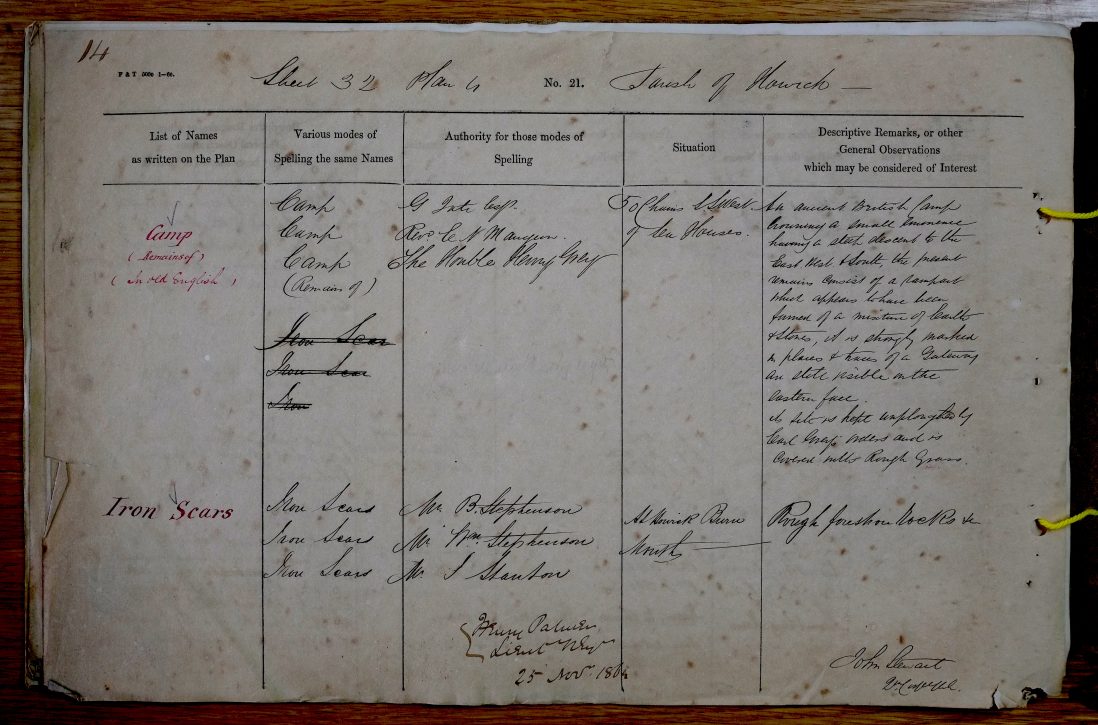 14
P & T 5000 1-60.
Sheet 32 Plan 4 No. 21. Parish of Howick
List of Names
as written on the Plan
Various modes of
Spelling the same Names
Authority for those modes of
Spelling
Situation
Descriptive Remarks, or other
General Observations
which may be considered of Interest
Camp
(Remains of)
(In old English)
Camp
Camp
Camp
(Remains of)
G Tate Esqr.
Revd. C N
The Honble Henry Grey
50 Chains S S West
of Sea Houses.
An ancient British Camp
Crowning a small Eminence
having a steep descent to the
East West & South, the present
remains consist of a rampart
which appears to have been
formed of a mixture of Earth
& Stones, it is strongly marked
in places & traces of a Gateway
are still visible on the
Eastern face.
its site is kept unploughed by
Earl Greys orders and is
Covered with Rough Grass.
Iron Scar
Iron Scar
Iron
Iron Scars
Iron Scars
Iron Scars
Iron Scars
Mr. B. Stephenson
Mr. Wm. Stephenson
Mr. J Stanton
At Howick Burn
Mouth
Rough foreshore Rocks &
Henry Palmer
Lieut RE
25 Novr. 1861
John Stewart